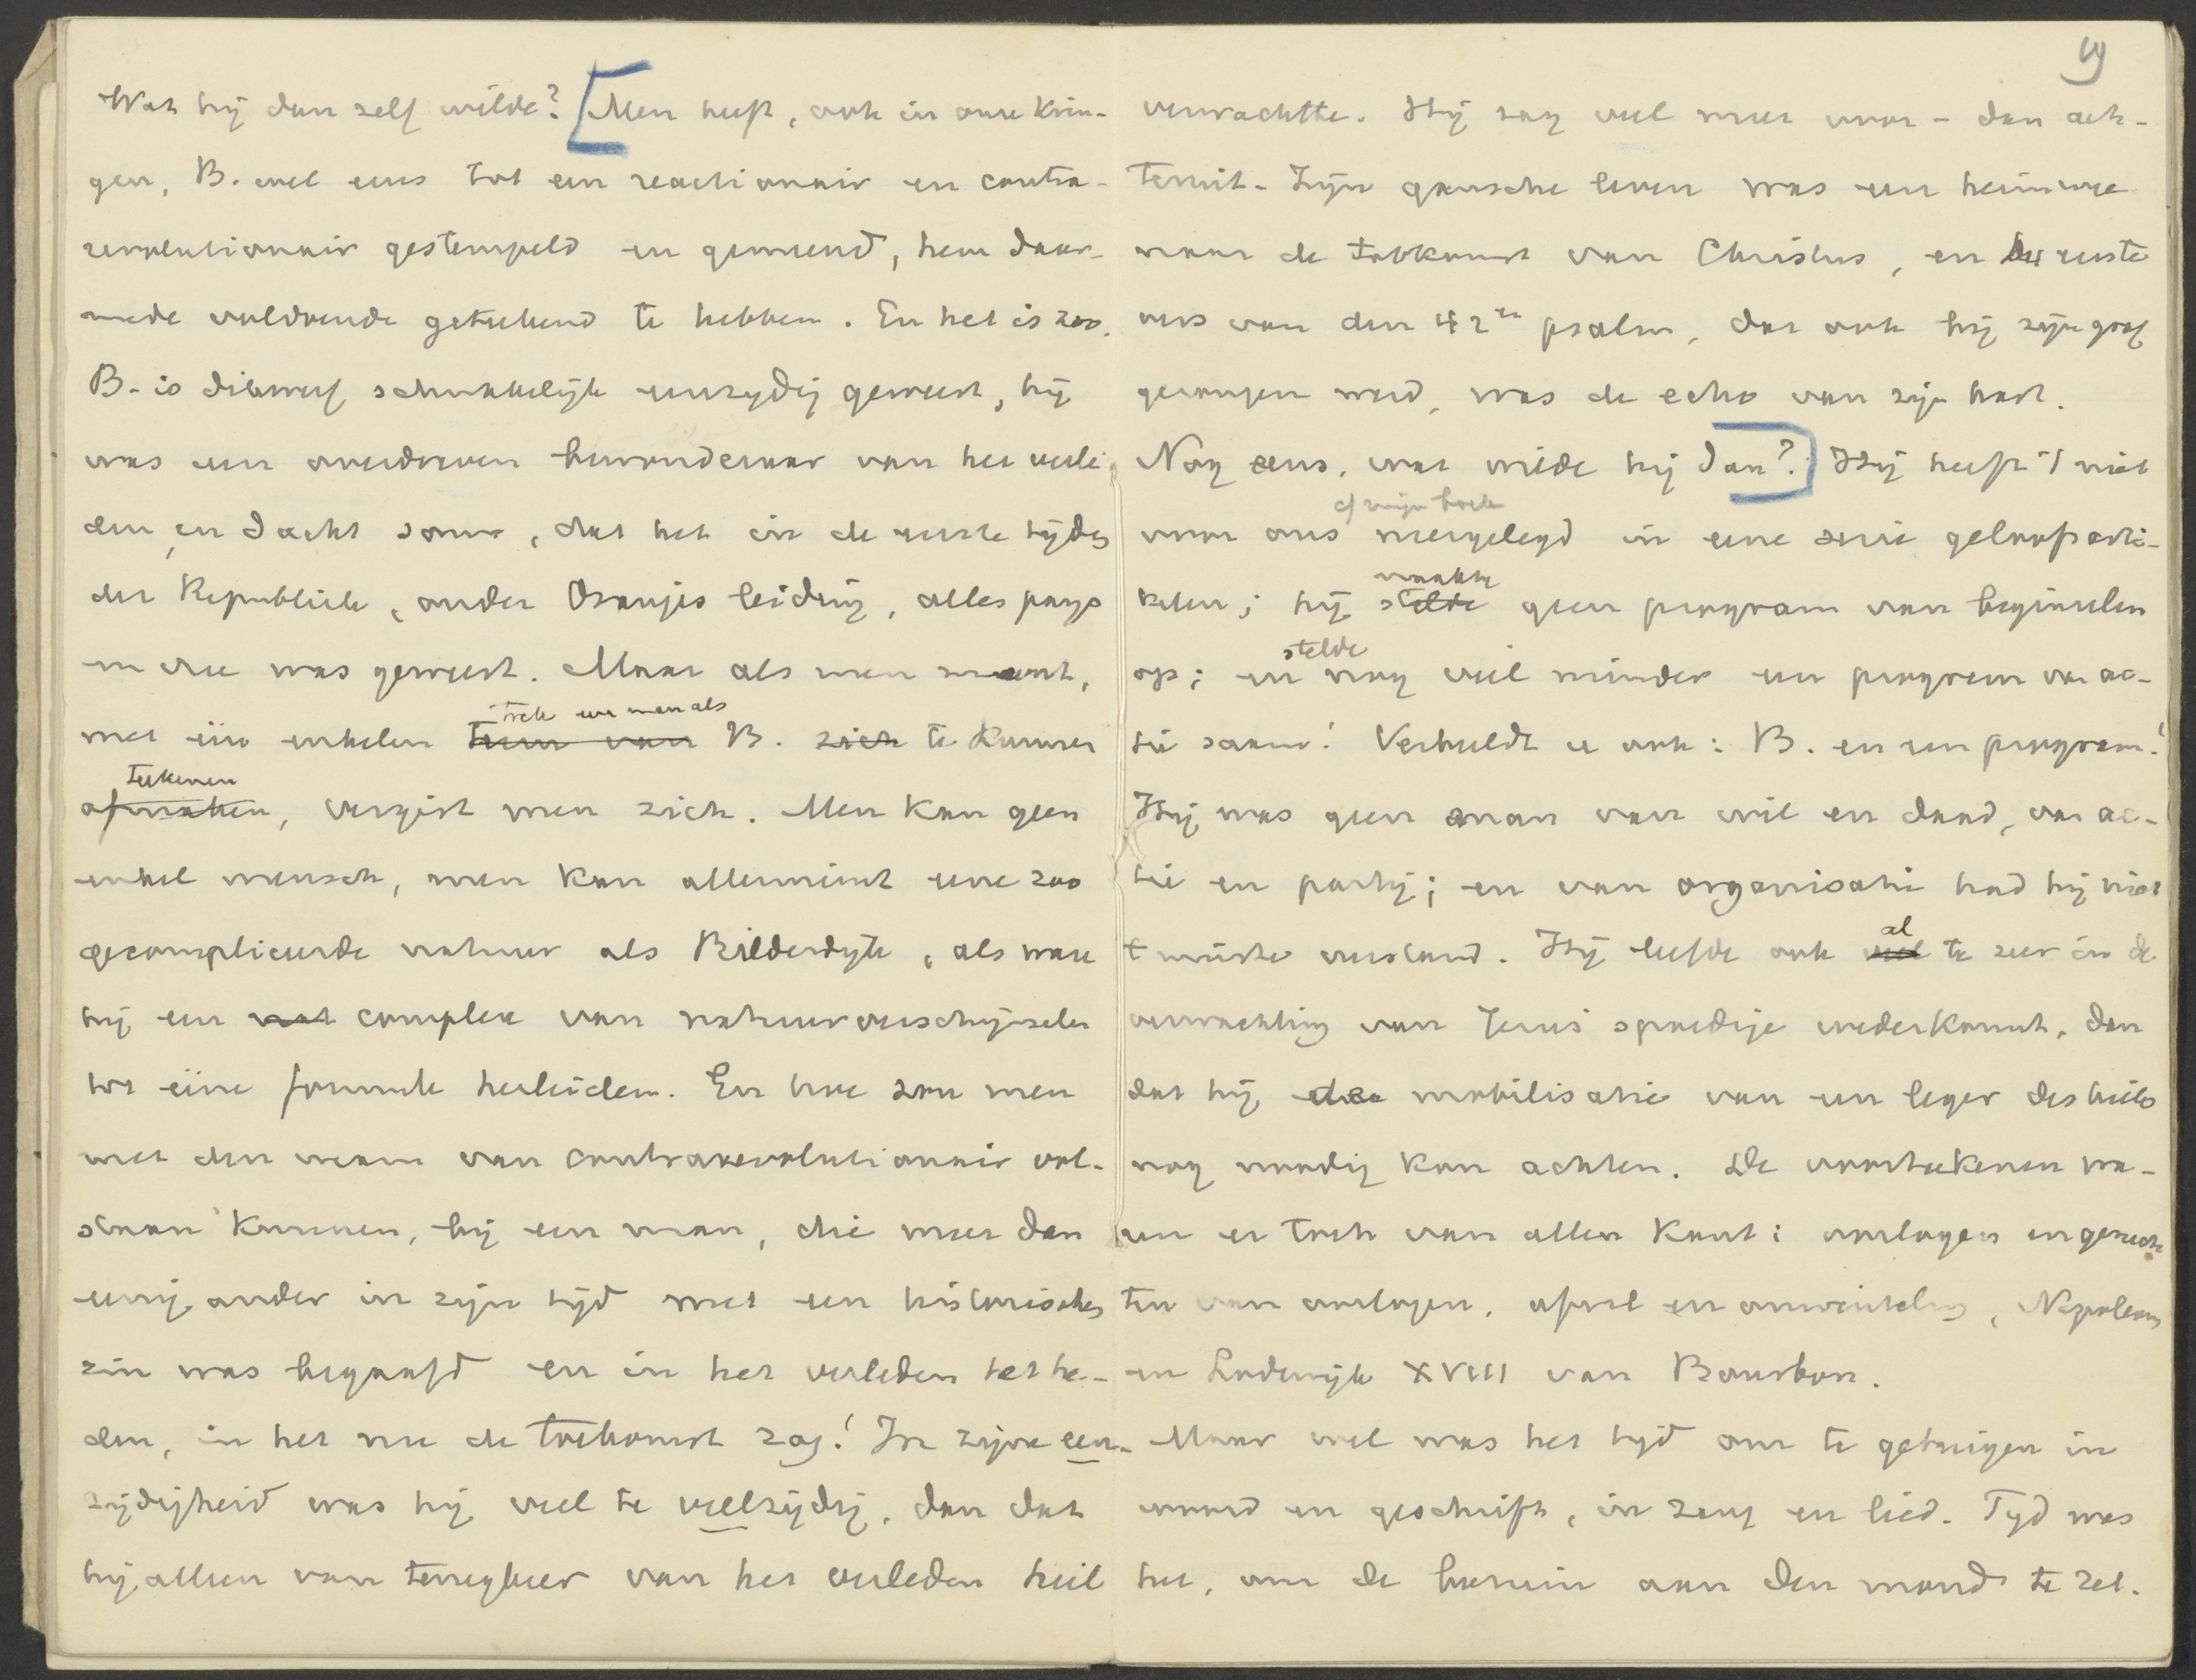 Wat hij dan zelf wilde? [Men heeft, ook in onze krin-
gen, B. wel eens tot een reactionnair en contra-
revolutionnair gestempeld en gemeend, hem daar-
mede voldoende geteekend te hebben. En het is zoo.
B. is dikwerf schrikkelijk eenzydig geweest, hij
was een overdreven bewonderaar van het verle-
den, en dacht soms, dat het in de eerste tijden
der Republiek, onder Oranjes leiding, alles pays
en vree was geweest. Maar als men meent,
trek een man als
met één enkelen teem van B. zich te kunnen
teekenen
afmaken, vergist men zich. Men kan geen
enkel mensch, men kan allerminst eene zoo
gecompliceerde natuur als Bilderdyk, als ware
hij een nat complex van natuurverschijnselen
tot ééne formule herleiden. En hoe zou men
met den naam van contrarevolutionnair vol-
staan kunnen, bij een man, die meer dan
eenig ander in zijn tijd met een historischen
zin was begaafd en in het verleden het he-
den, in het nu de toekomst zag! In zijne een-
zijdigheid was hij veel te veelzijdig, dan dat
hij alleen van terugkeer van het verleden heil
9
verwachtte. Hij zag veel meer voor- dan ach-
teruit. Zijn gansche leven was een heimwee
naar de toekomst van Christus, en het eerste
vers van den 42en psalm, dat ook bij zijn graf
gezongen werd, was de echo van zijn hart.
Nog eens, wat wilde hij dan?.] Hij heeft 't niet
of zijn boek
voor ons neergelegd in eene serie geloofsarti-
maakte
kelen; hij stelde geen program van beginselen
stelde
op; en nog veel minder een program van ac-
tie saam! Verbeeldt u ook: B. en een program!
Hij was geen man van wil en daad, van ac-
tie en partij; en van organisatie had hij niet
al
t minste verstand. Hij leefde ook veel te zeer in de
verwachting van Jezus' spoedige wederkomst, dan
dat hij de mobilisatie van een leger des heils
nog noodig kon achten. De voorteekenen wa-
ren er toch van allen kant: oorlogen en geruch-
ten van oorlogen, afval en omwenteling, Napoleon
en Lodewijk XVIII van Bourbon.
Maar wel was het tijd om te getuigen in
woord en geschrift, in zang en lied. Tijd was
het, om de bazuin aan den mond te zet-